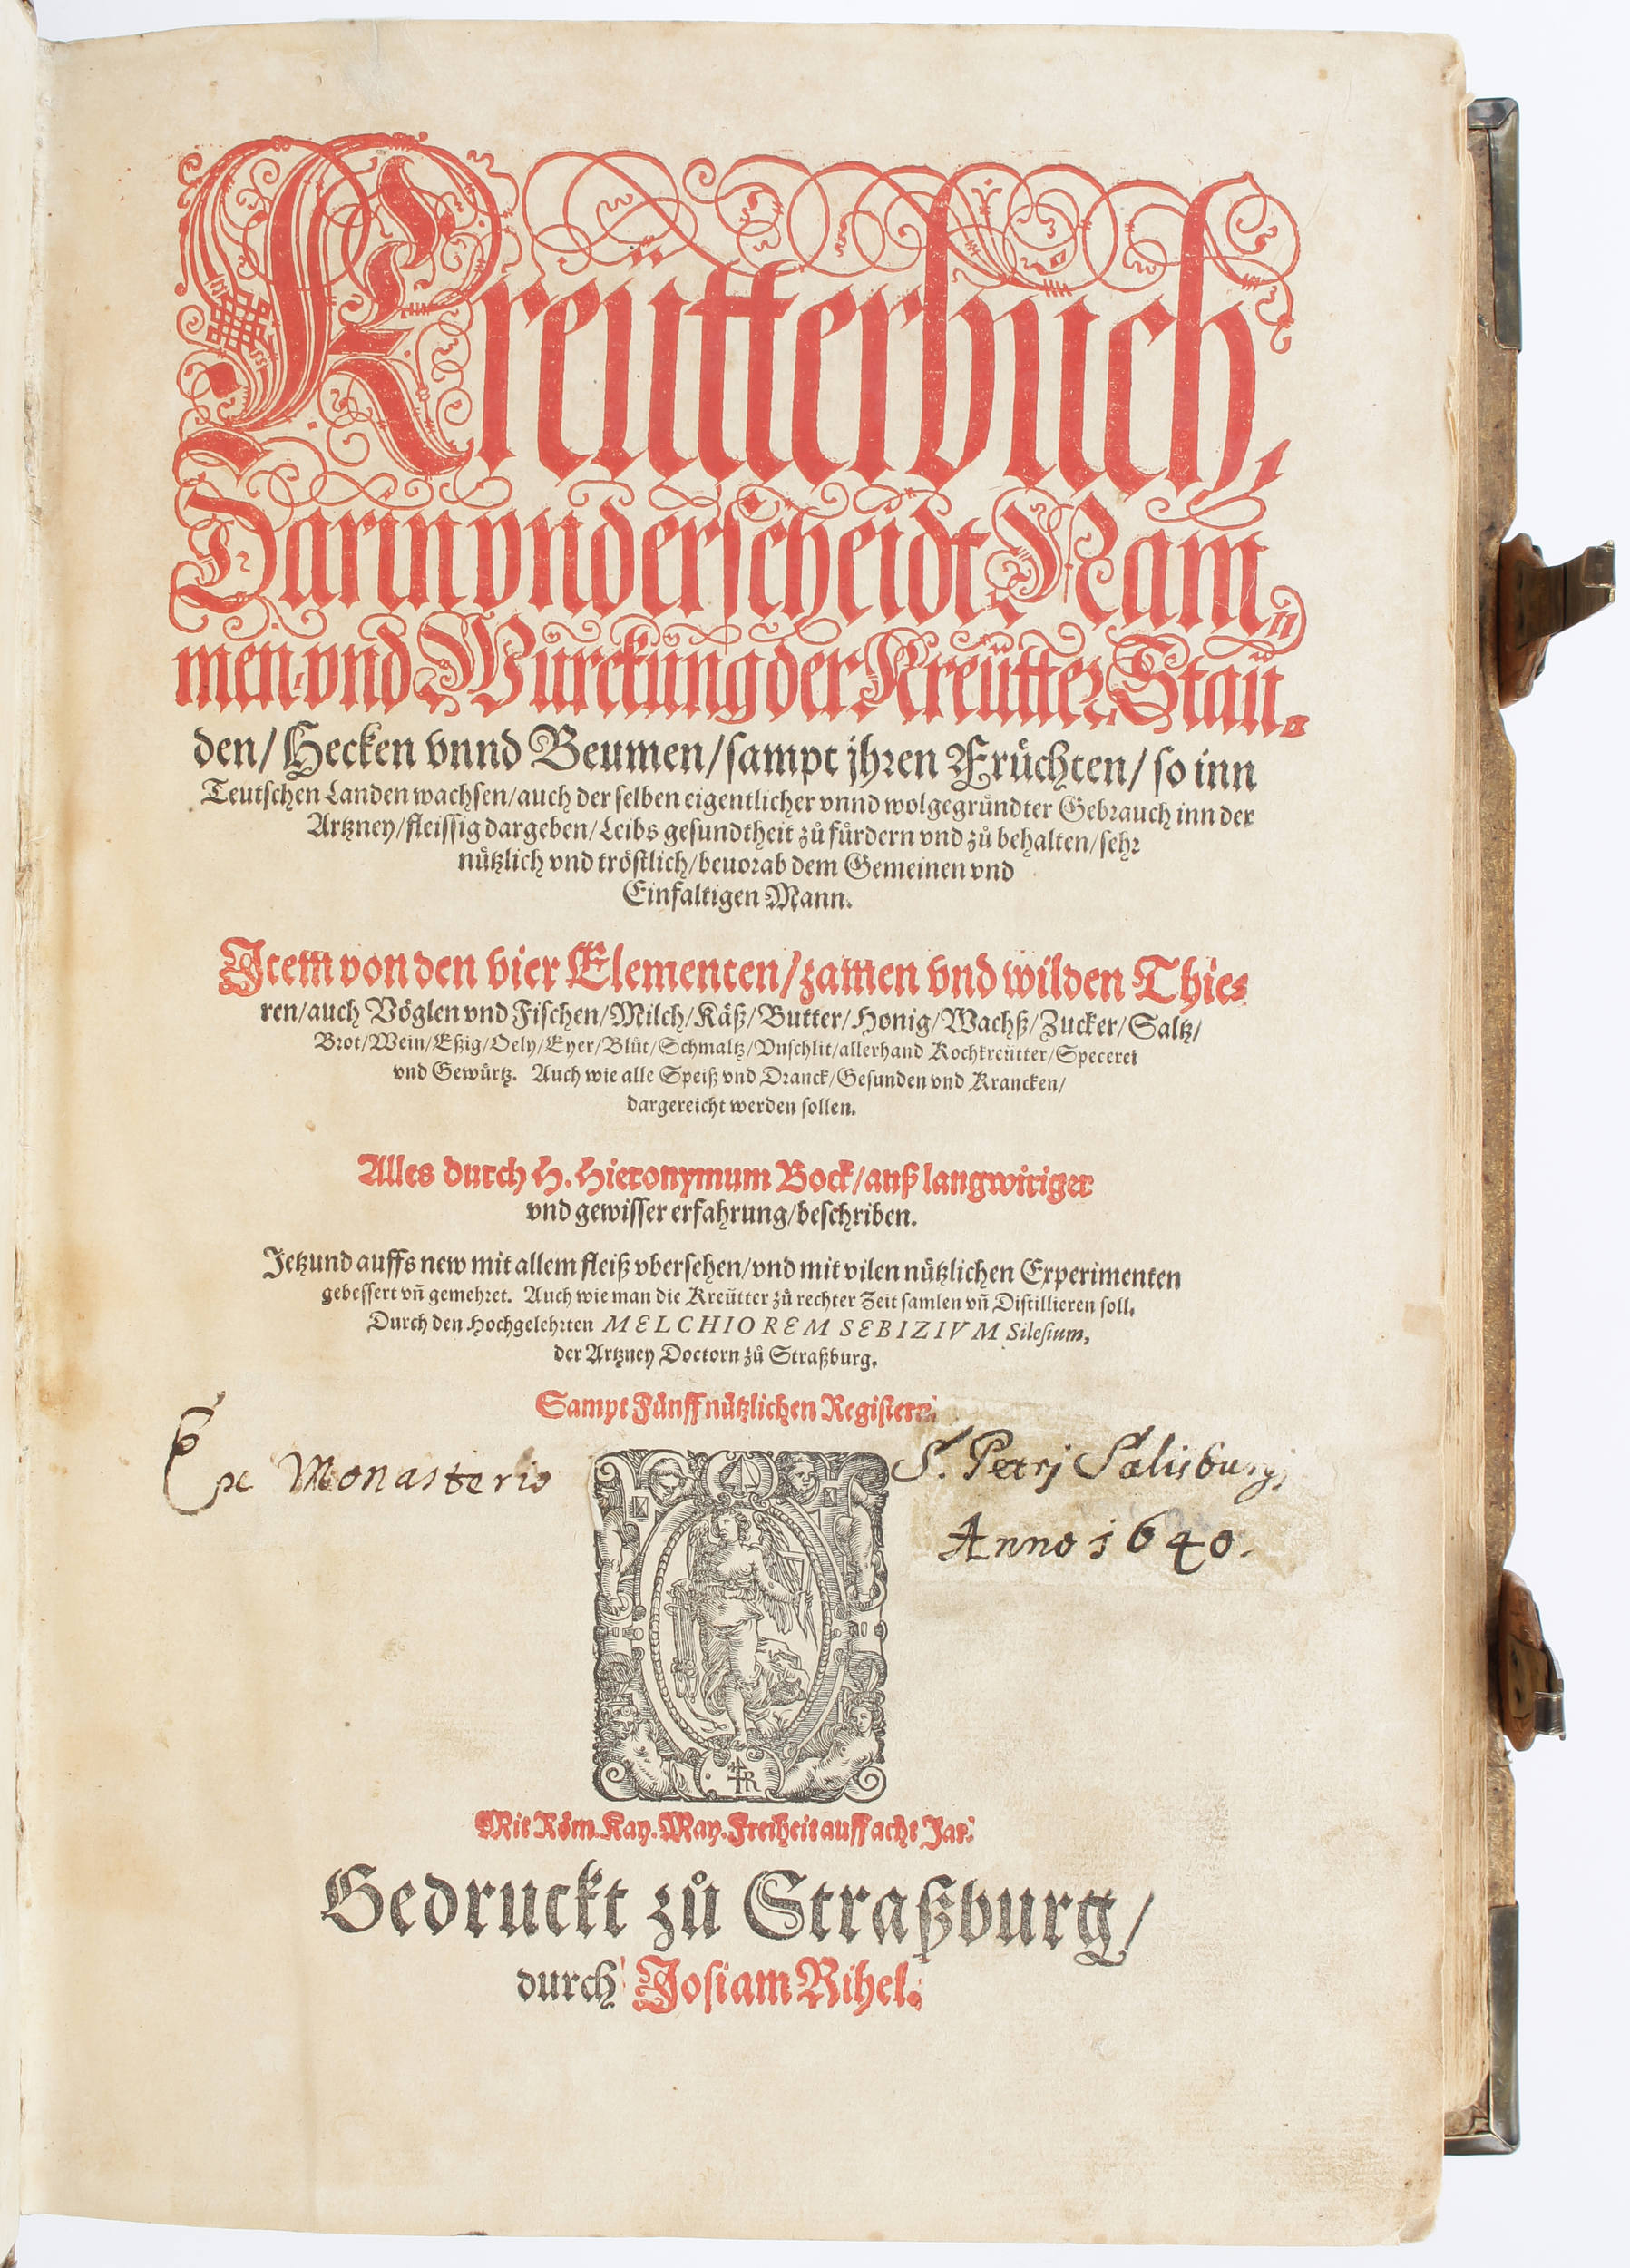 Kreütterbuch,
Darin vnderscheidt Nam
men vnd Würckung der Kreütter, Stau,
den/ Hecken vnnd Beumen/ sampt jhren Früchten/ so inn
Teutschen Landen wachsen/ auch der selben eigentlicher vnnd wolgegründter Gebrauch inn der
Artzney/ fleissig dargeben/ Leibs gesundtheit zů fürdern vnd zů behalten/ sehr
nützlich vnd tröstlich/ beuorab dem Gemeinen vnd
Einfaltigen Mann.
Item von den vier Elementen/ zamen vnd wilden Thie⸗
ren/ auch Vöglen vnd Fischen/ Milch/ Käß/ Butter/ Honig/ Wachß/ Zucker/ Saltz/
Brot/ Wein/ Eßig/ Oely/ Eyer/ Blůt/ Schmaltz/ Vnschlit/ allerhand Kochkreütter/ Specerei
vnd Gewürtz. Auch wie alle Speiß vnd Dranck/ Gesunden vnd Krancken/
dargereicht werden sollen.
Alles durch H. Hieronymum Bock/ auß langwiriger
vnd gewisser erfahrung/ beschriben.
Jetzund auffs new mit allem fleiß vbersehen/ vnd mit vilen nützlichen Experimenten
gebessert vñ gemehret. Auch wie man die Kreütter zů rechter Zeit samlen vñ Distillieren soll,
Durch den Hochgelehrten MELCHIOREM SEBIZIVM Silesium,
der Artzney Doctorn zů Straßburg.
Sampt Fünff nützlichen Registern.
Ex Monasterio S. Petrj Salisburgj
Anno 1640.
R
Mit Röm. Kay. May. Freiheit auff acht Jar.
Gedruckt zů Straßburg/
durch Josiam Rihel.